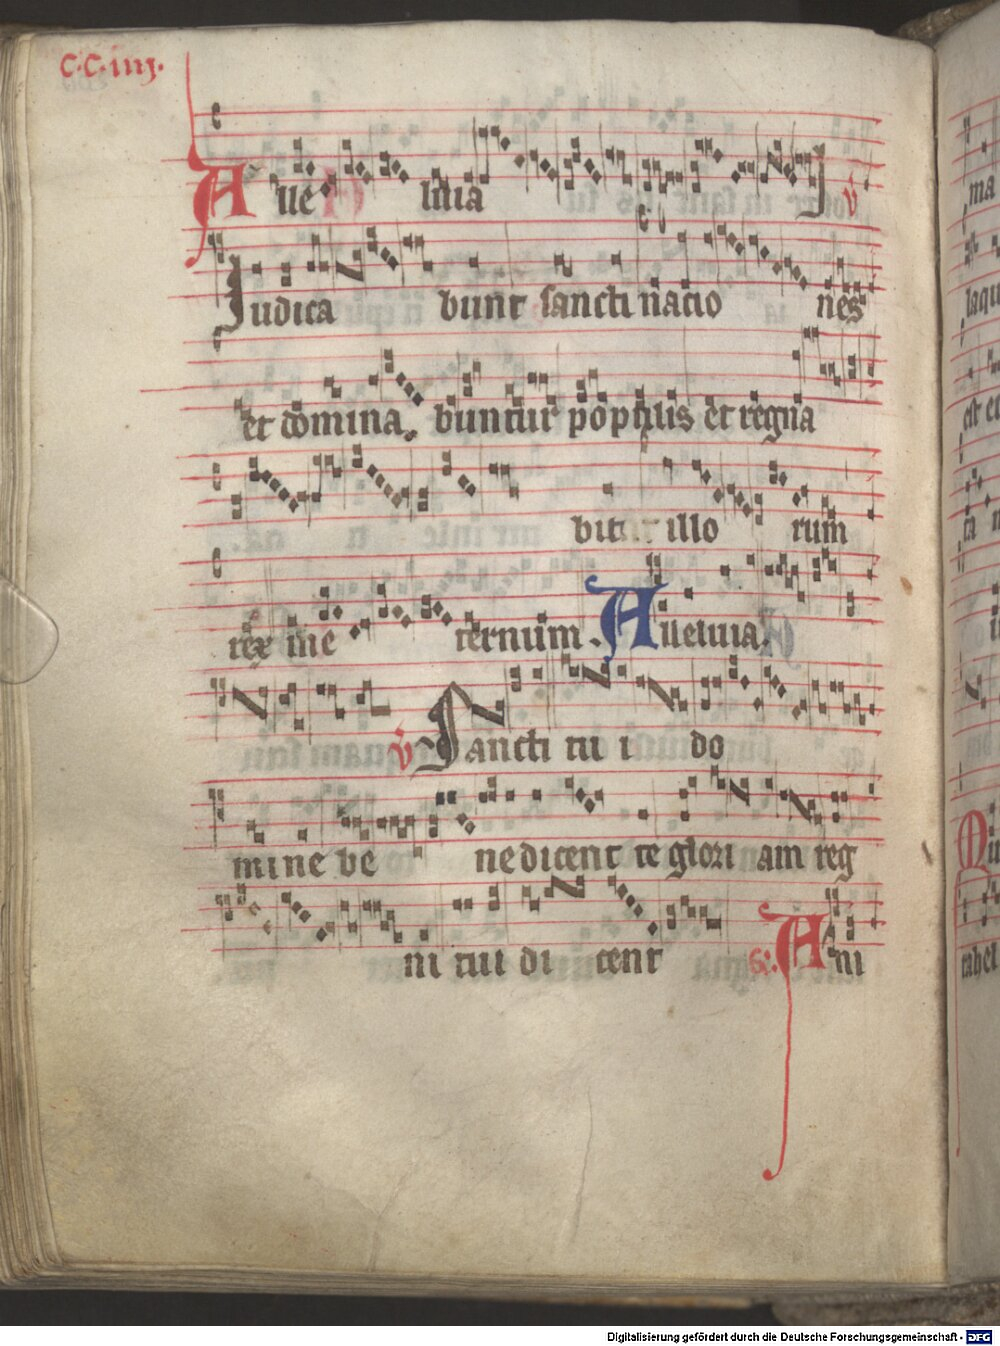 C.C.iiij.
Alle luia V
Judica bunt sancti nacio nes
et domina buntur populis et regna
bitur illo rum
rex ine ternum. Alleluia.
V Sancti tu i do
mine be nedicent te glori am reg
ni tui di cent G: Ani
ma
laqu
est e
ta
Mi
rahet
Digitalisierung gefördert durch die Deutsche Forschungsgemeinschaft - DFG